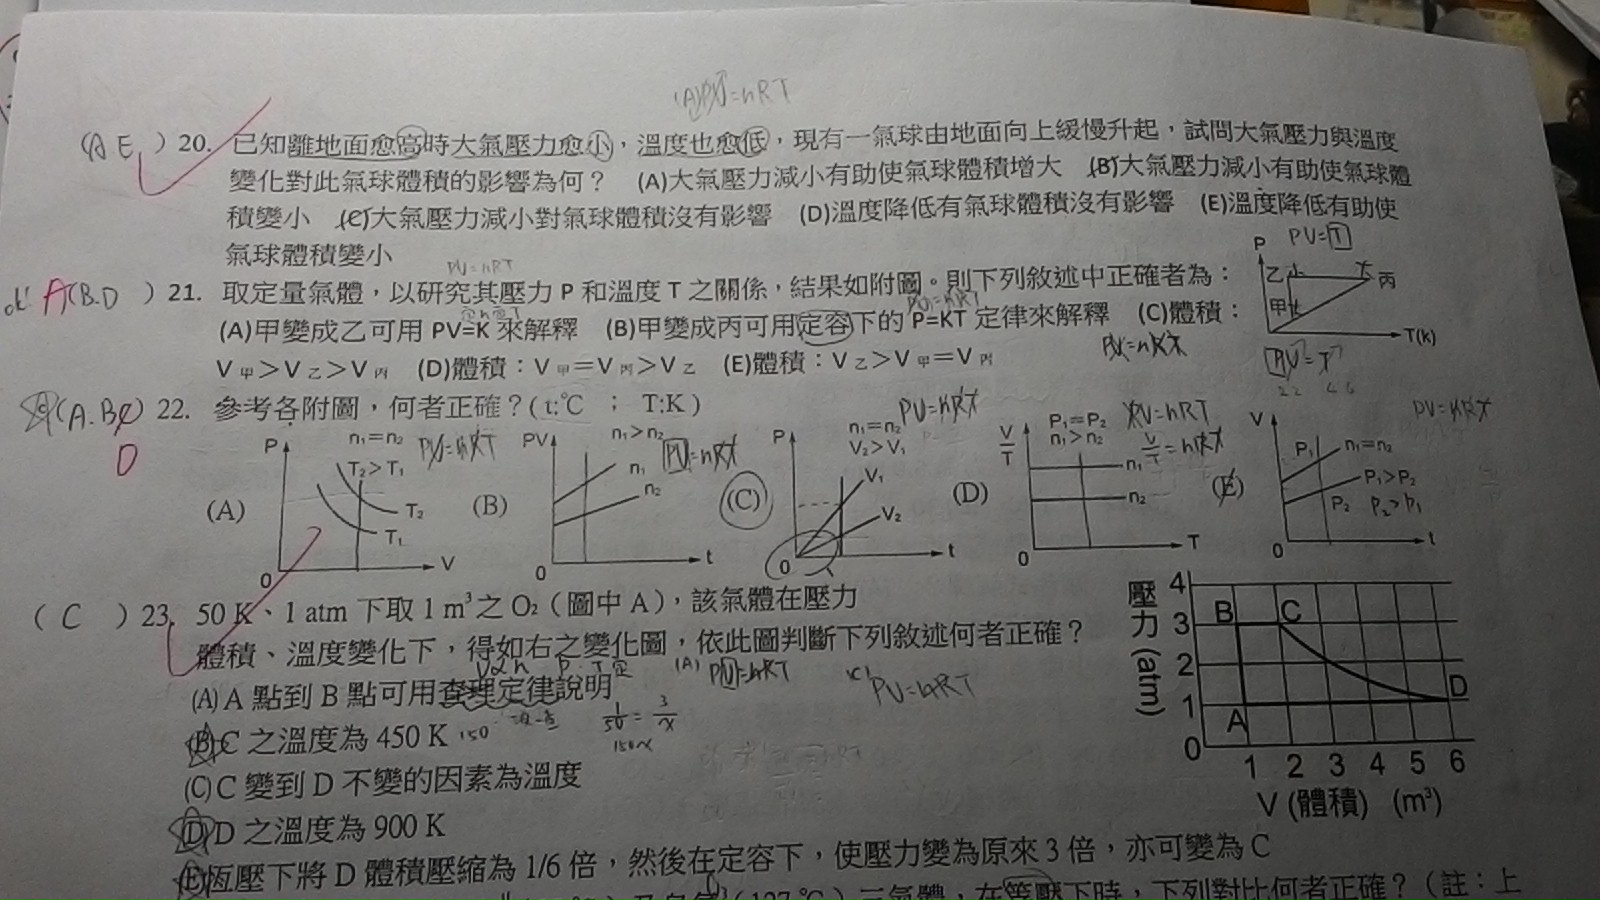 (A)PV=nRT
(A E ) 20. 已知離地面愈高時大氣壓力愈小，溫度也愈低，現有一氣球由地面向上緩慢升起，試問大氣壓力與溫度
變化對此氣球體積的影響為何？ (A)大氣壓力減小有助使氣球體積增大 (B)大氣壓力減小有助使氣球體
積變小 (C)大氣壓力減小對氣球體積沒有影響 (D)溫度降低有氣球體積沒有影響 (E)溫度降低有助使
氣球體積變小
PV=nRT
P PV=T
乙 丙
甲
T(k)
A(B.D ) 21. 取定量氣體，以研究其壓力 P 和溫度 T 之關係，結果如附圖。則下列敘述中正確者為：
PV=nRT
(A)甲變成乙可用 PV=K 來解釋 (B)甲變成丙可用定容下的 P=KT 定律來解釋 (C)體積：
V 甲＞V 乙＞V 丙 (D)體積：V 甲＝V 丙＞V 乙 (E)體積：V 乙＞V 甲＝V 丙
PV=nRT
PV=T
(A.BC ) 22. 參考各附圖，何者正確？( t:℃ ； T:K )
D
(A) P n₁=n₂ PV=nRT T₂>T₁ T₂ T₁ 0 V
(B) PV n₁>n₂ PV=nRT n₁ n₂ 0 t
(C) P n₁=n₂ V₂>V₁ PV=nRT V₁ V₂ 0 t
(D) V/T P₁=P₂ n₁>n₂ PV=nRT V/T=nRT n₁ n₂ 0 T
(E) V PV=nRT P₁ n₁=n₂ P₁>P₂ P₂ P₂>P₁ 0 t
( C ) 23. 50 K、1 atm 下取 1 m³之 O₂（圖中 A），該氣體在壓力
體積、溫度變化下，得如右之變化圖，依此圖判斷下列敘述何者正確？
V∝n P.T定 (A) PV=nRT (C) PV=nRT
(A) A 點到 B 點可用查理定律說明
(B) C 之溫度為 450 K 150
1/50=3/x
150=x
(C) C 變到 D 不變的因素為溫度
(D) D 之溫度為 900 K
(E)恆壓下將 D 體積壓縮為 1/6 倍，然後在定容下，使壓力變為原來 3 倍，亦可變為 C
壓力(atm)
4
3
2
1
0
B C
A D
1 2 3 4 5 6
V (體積) (m³)
三氣體，在等壓下時，下列對比何者正確？（註：上